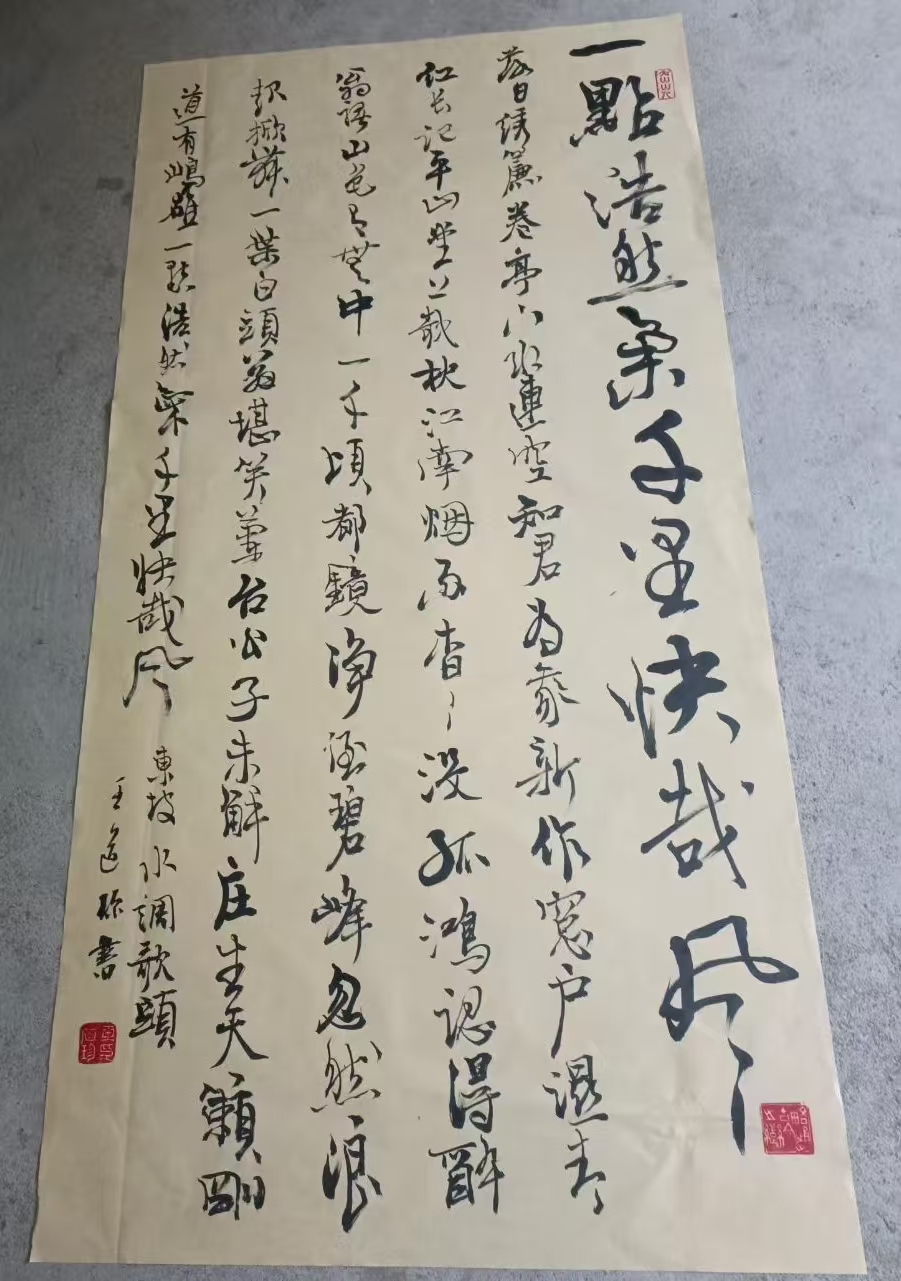 一點浩然氣千里快哉風
落日绣簾卷亭下水連空知君為我新作窓户濕青
红长记平山堂上欹枕江南烟雨杳〻没孤鴻認得醉
翁語山色有無中一千頃都鏡净倒碧峰忽然浪
起掀舞一葉白頭翁堪笑蘭台公子未解庄生天籟剛
道有雌雄一點浩然氣千里快哉风
東坡水調歌頭
王道珍書